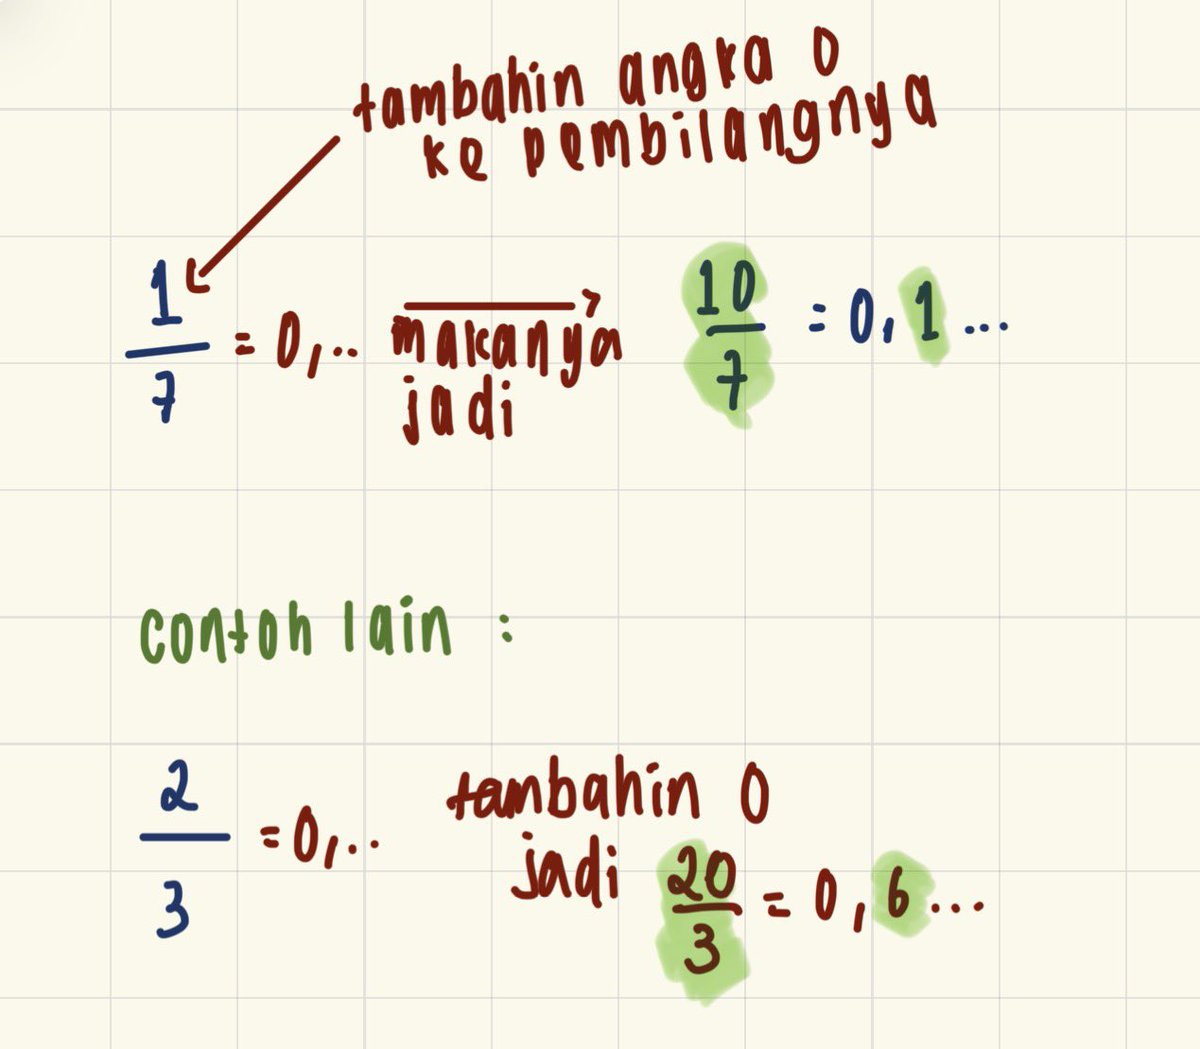 tambahin angka 0
ke pembilangnya
1/7 = 0,.. makanya jadi 10/7 = 0,1...
contoh lain :
2/3 = 0,.. tambahin 0
jadi 20/3 = 0,6...